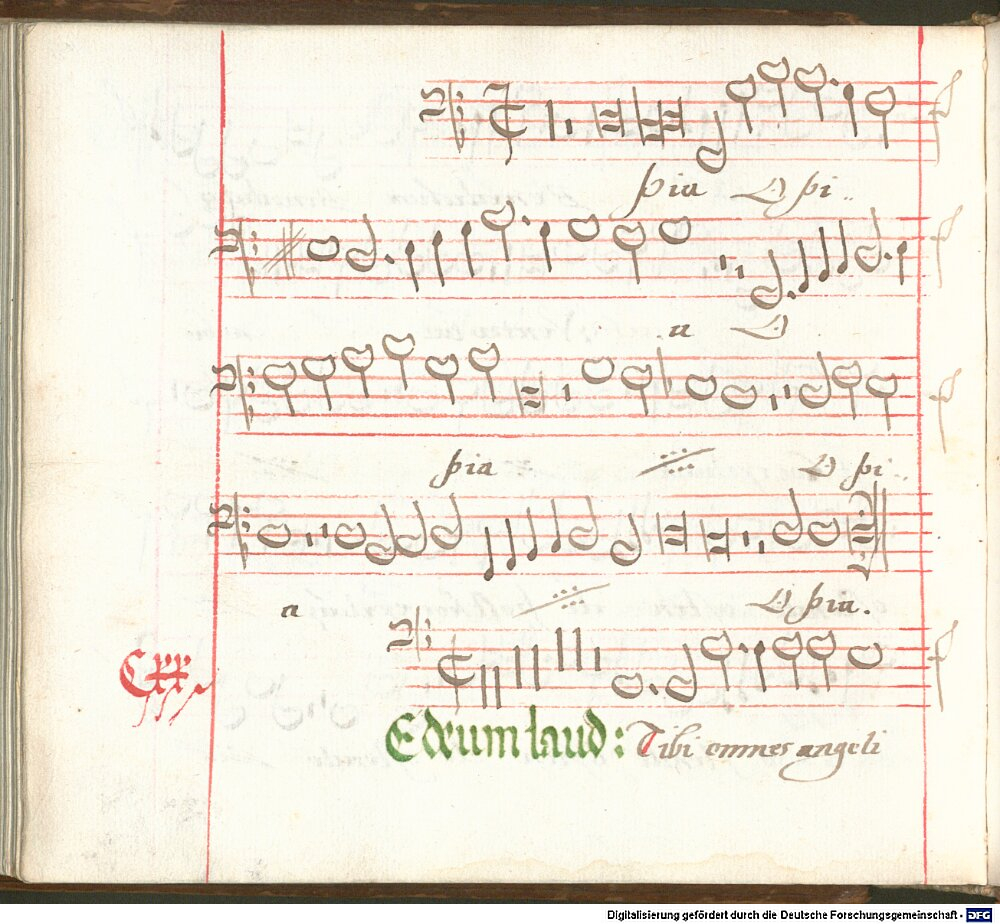 pia O pi..
.a O
pia O pi..
a O pia.
Cxx
E deum laud: Tibi omnes angeli
Digitalisierung gefördert durch die Deutsche Forschungsgemeinschaft - DFG